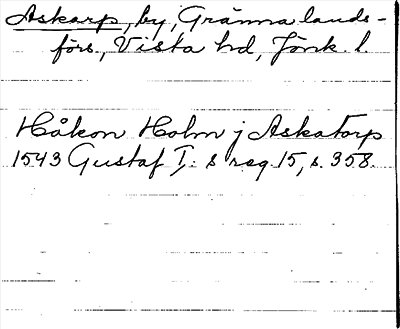 Askarp, by, Gränna lands-
förs., Vista hd, Jönk. l.
Håkon Holm j Askatorp
1543 Gustaf I: s reg. 15, s. 358.